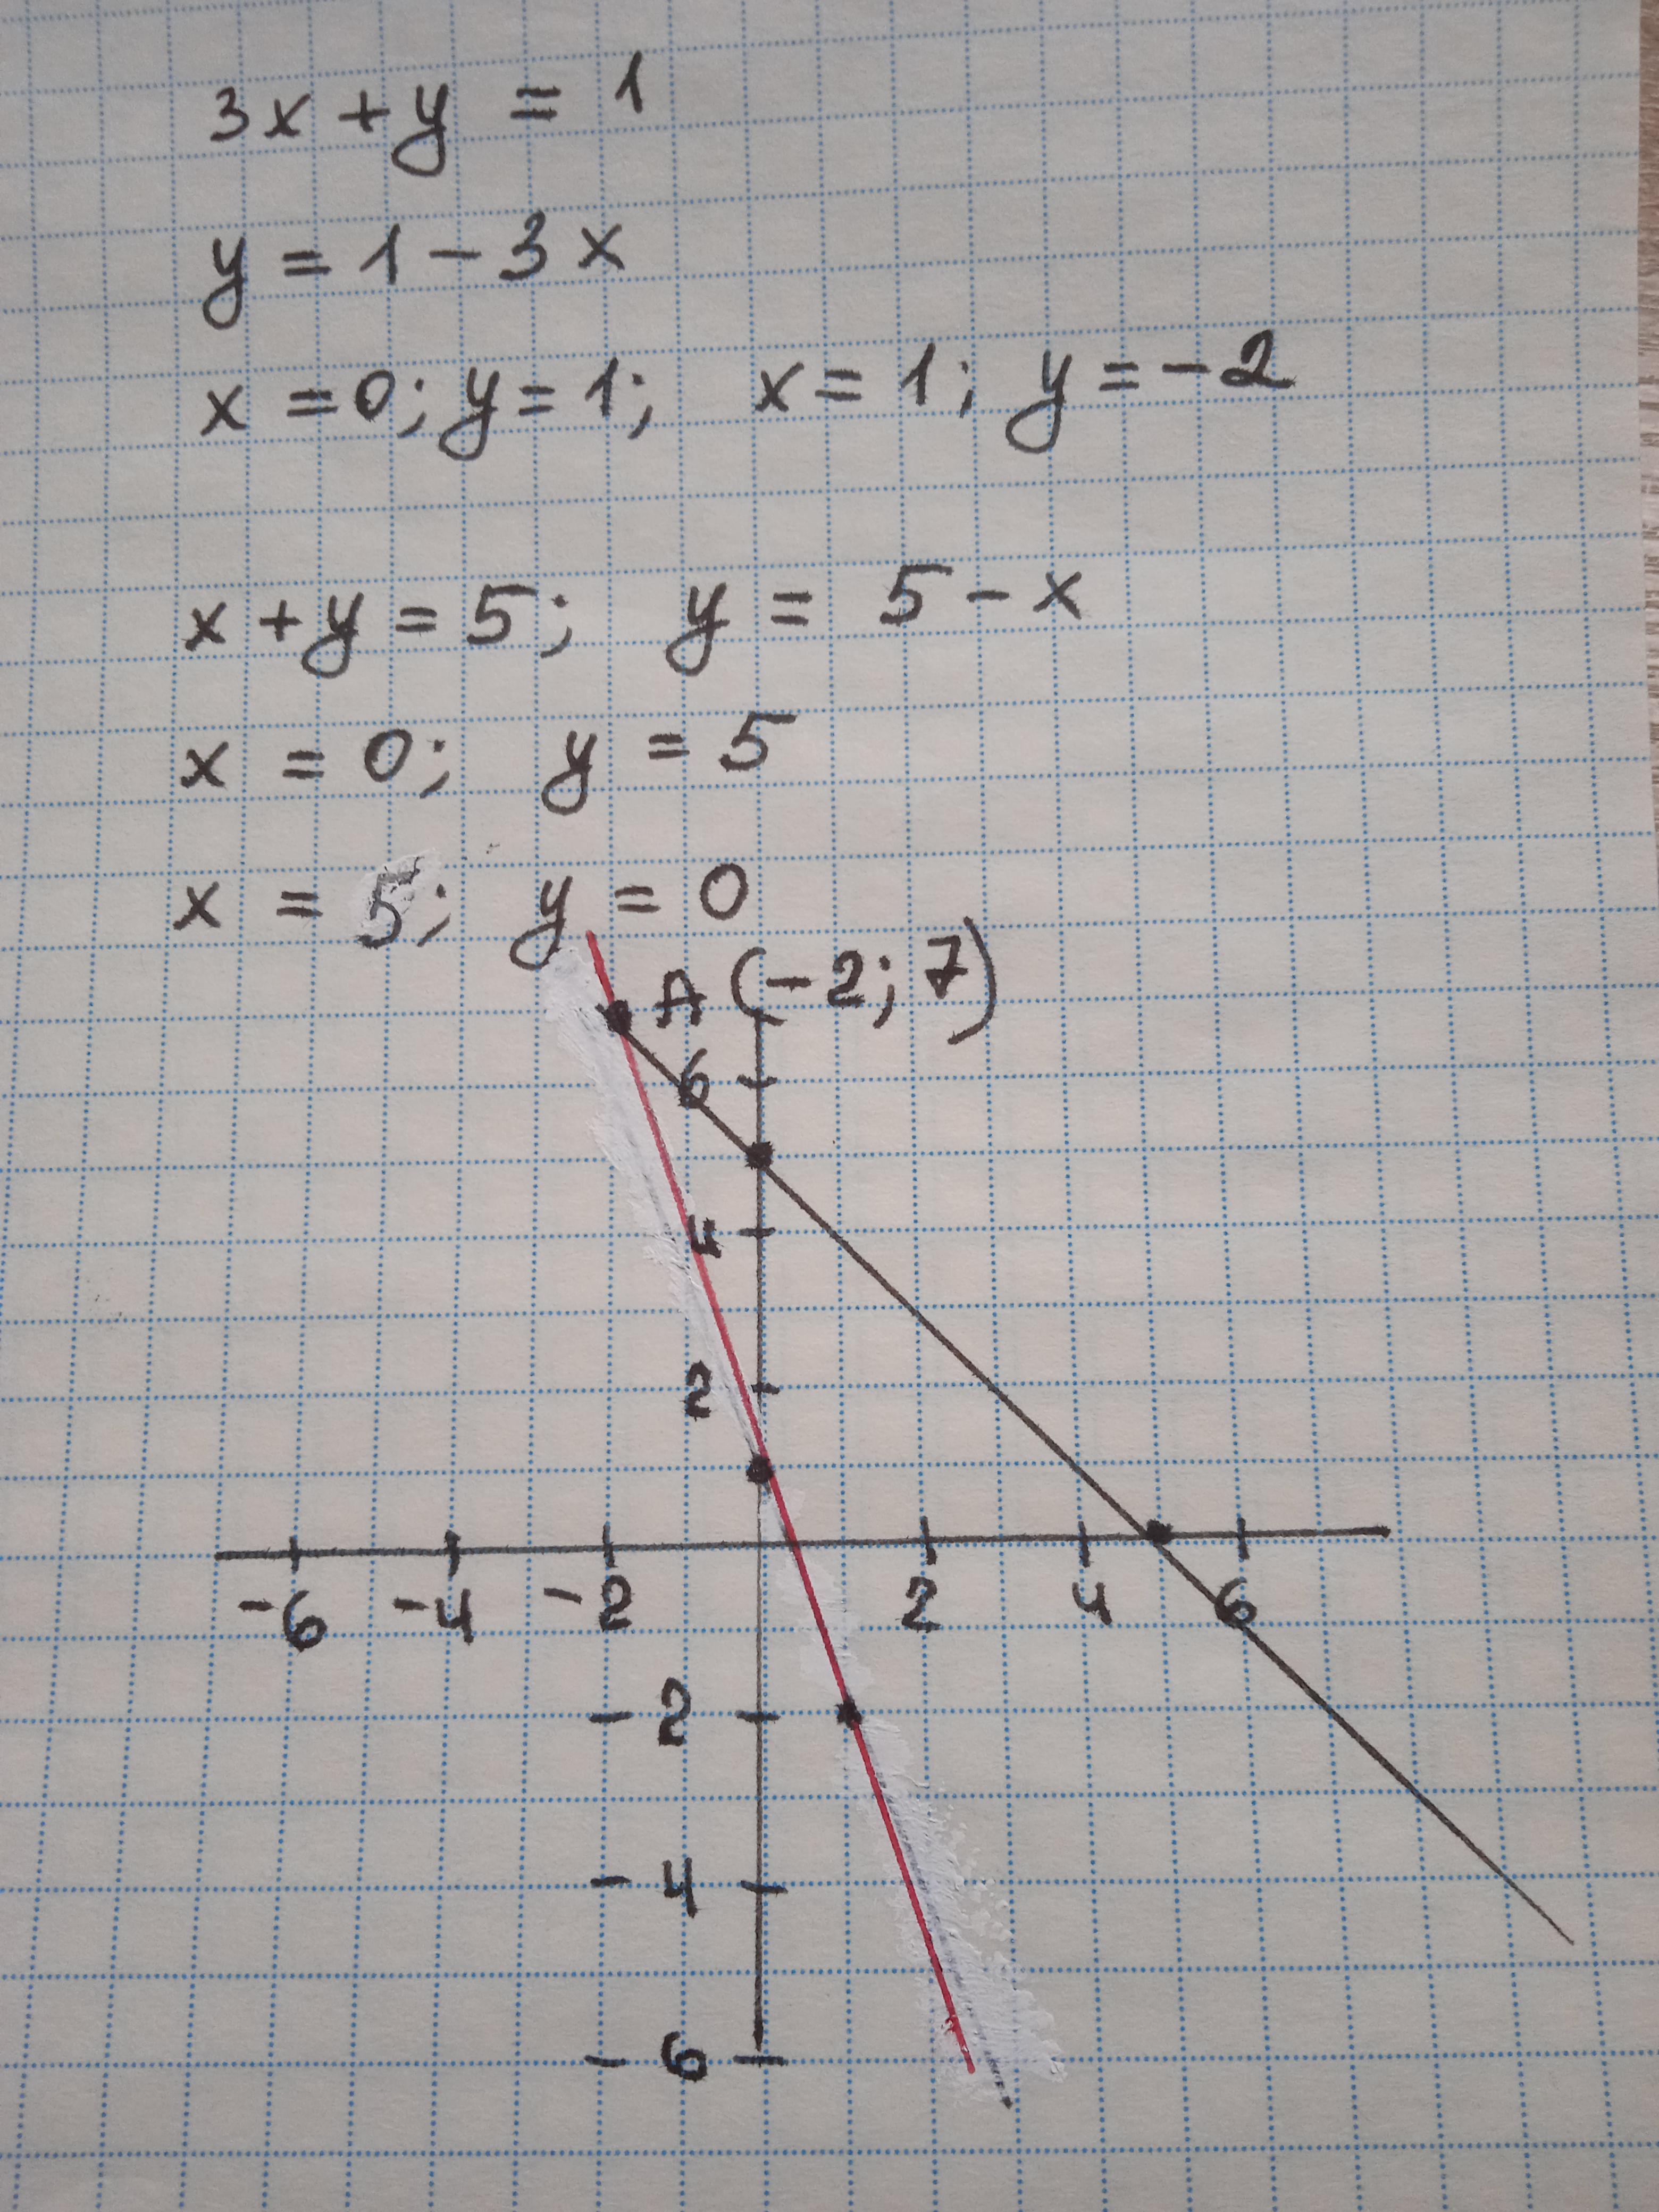 3x + y = 1
y = 1 - 3x
x = 0; y = 1; x = 1; y = -2
x + y = 5; y = 5 - x
x = 0; y = 5
x = 5; y = 0
A (-2; 7)
6
4
2
-6 -4 -2 2 4 6
-2
-4
-6